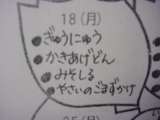 18(月)
●ぎゅうにゅう
●かきあげどん
●みそしる
●やさいのごまずかけ
25(月)